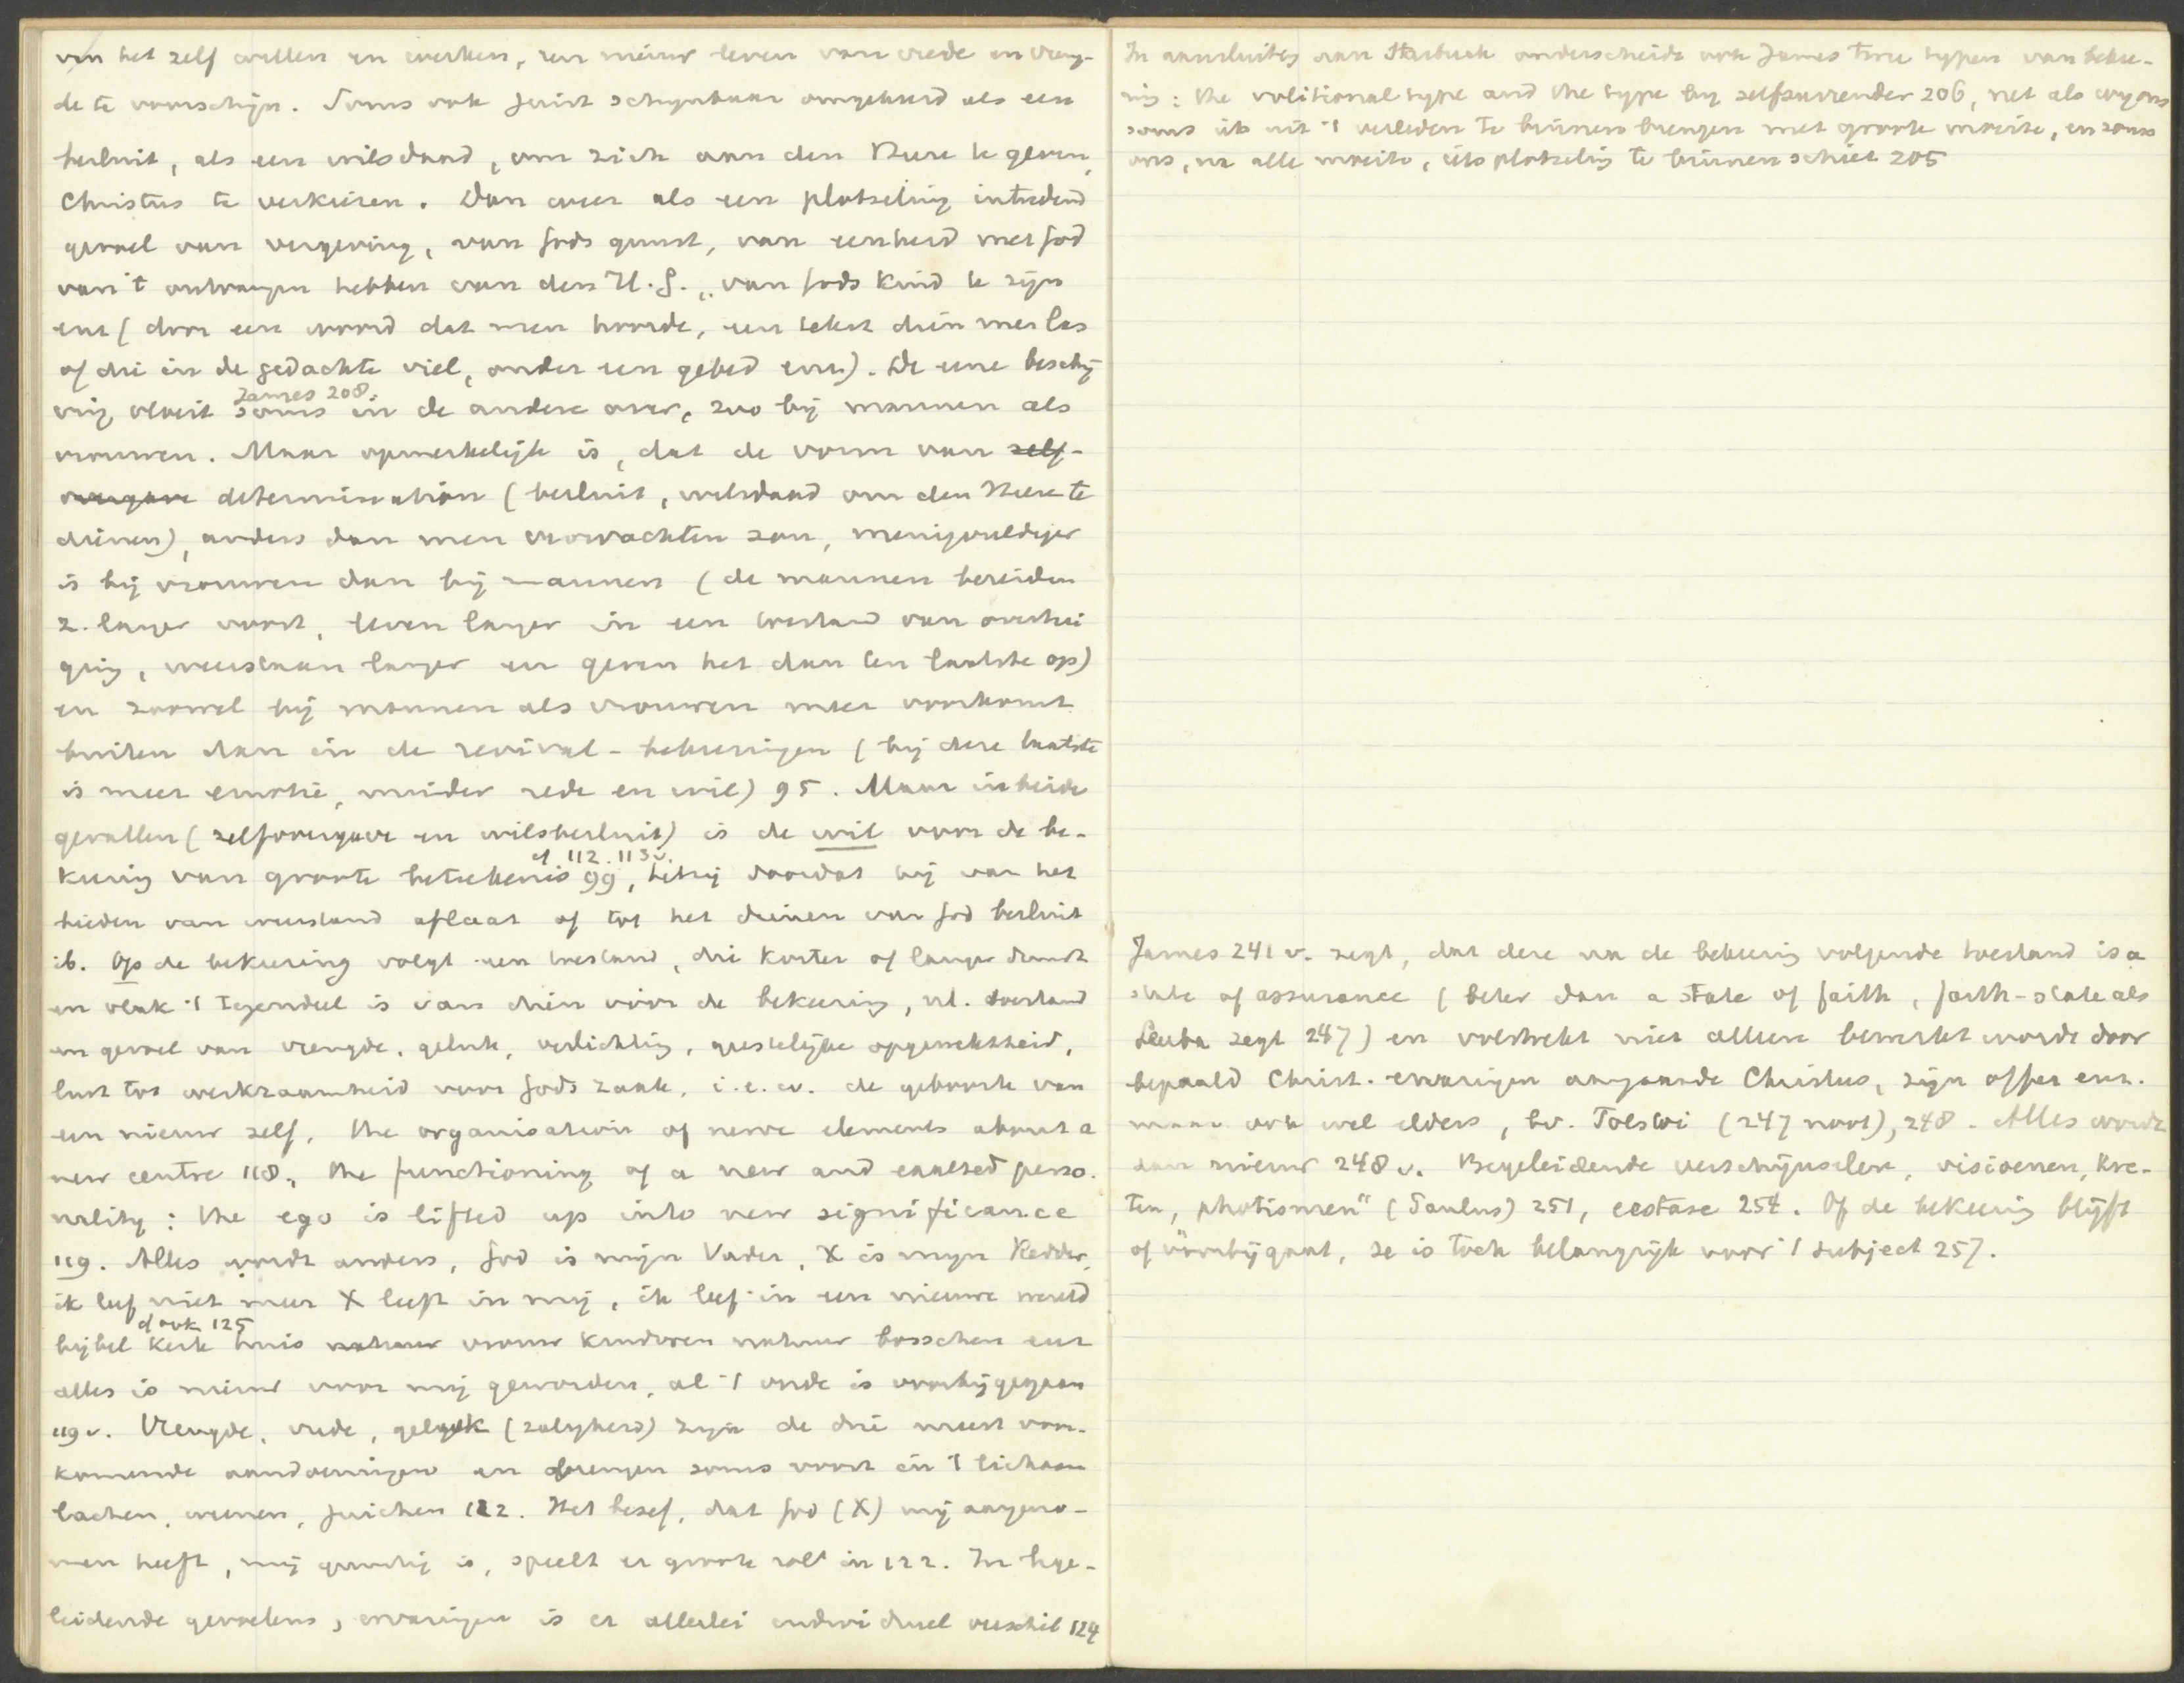 van het zelf willen en werken, een nieuw leven van vrede en vreug-
de te voorschijn. Soms ook juist schijnbaar omgekeerd als een
besluit, als een wilsdaad, om zich aan den Heere te geven,
Christus te verkiezen. Dan weer als een plotseling intredend
gevoel van vergeving, van Gods gunst, van eenheid met God
van 't ontvangen hebben van den H.G., van Gods kind te zijn
enz (door een woord dat men hoorde, een tekst dien men las
of die in de gedachte viel, onder een gebed enz). De eene beschrij
James 208.
ving vloeit soms in de andere over, zoo bij mannen als
vrouwen. Maar opmerkelijk is, dat de vorm van zelf-
overgave determination (besluit, wilsdaad om den Heere te
dienen), anders dan men verwachten zou, menigvuldiger
is bij vrouwen dan bij mannen (de mannen bereiden
z. langer voor, leven langer in een toestand van overtui
ging, weerstaan langer en geven het dan ten laatste op)
en zoowel bij mannen als vrouwen meer voorkomt
buiten dan in de revival-bekeeringen (bij deze laatste
is meer emotie, minder rede en wil) 95. Maar in beide
gevallen (zelfovergave en wilsbesluit) is de wil voor de be-
cf 112. 113v.
keering van groote beteekenis 99, hetzij doordat hij van het
bieden van weerstand aflaat of tot het dienen van God besluit
ib. Op de bekeering volgt een toestand, die korter of langer duurt
en vlak 't tegendeel is van dien vóór de bekeering, nl. toestand
en gevoel van vreugde, geluk, verlichting, geestelijke opgewektheid,
lust tot werkzaamheid voor Gods zaak, i.e.w. de geboorte van
een nieuw zelf, the organisation of nerve elements about a
new centre 118, the functioning of a new and exalted perso-
nality: the ego is lifted up into new significance
119. Alles wordt anders, God is mijn Vader, X is mijn Redder,
ik leef niet meer X leeft in mij, ik leef in een nieuwe wereld
cf ook 125
bijbel kerk huis natuur vrouw kinderen natuur bosschen enz
alles is nieuw voor mij geworden, al 't oude is voorbijgegaan
119v. Vreugde, vrede, geluk (zaligheid) zijn de drie meest voor-
komende aandoeningen en brengen soms voort in 't lichaam
lachen, weenen, juichen 122. Het besef, dat God (X) mij aangeno-
men heeft, mij genadig is, speelt er groote rol in 122. In bege-
leidende gevoelens, ervaringen is er allerlei individueel verschil 124
In aansluiting aan Starbuck onderscheidt ook James twee typen van bekee-
ring: the volitional type and the type by selfsurrender 206, net als wij ons
soms iets uit 't verleden te binnen brengen met groote moeite, en soms
ons, na alle moeite, iets plotseling te binnen schiet 205
James 241 v. zegt, dat deze na de bekeering volgende toestand is a
state of assurance (beter dan a state of faith, faith-state als
Leuba zegt 247) en volstrekt niet alleen bewerkt wordt door
bepaald Christ. ervaringen aangaande Christus, zijn offer enz.
maar ook wel elders, bv. Tolstoi (247 noot), 248. Alles wordt
dan nieuw 248 v. Begeleidende verschijnselen, visioenen, kre-
ten, „photismen" (Paulus) 251, ecstase 254. Of de bekeering blijft
of voorbijgaat, ze is toch belangrijk voor 't subject 257.